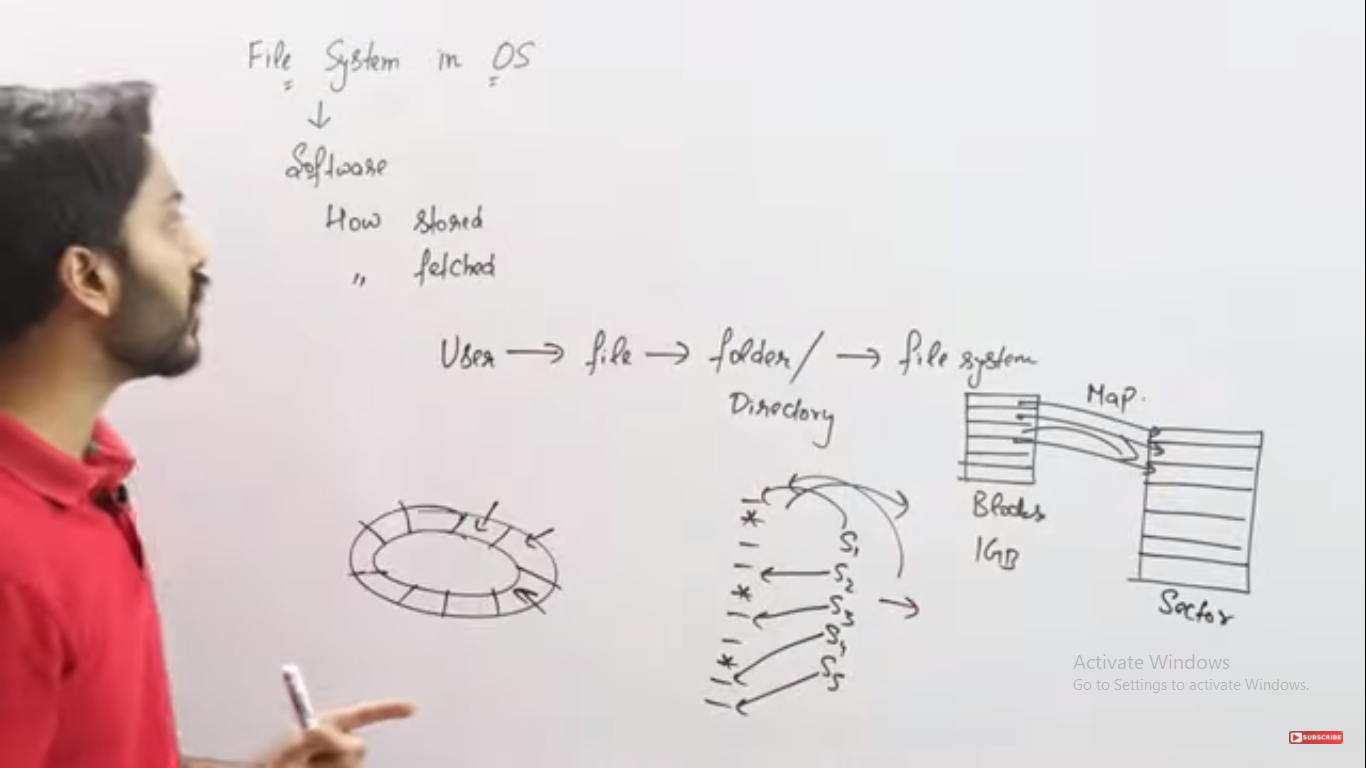 File System in OS
Software
How stored
" fetched
User → file → folder/ → file system
Directory
Map.
Blocks
1GB
Sector
S1
S2
S3
S4
S5
Activate Windows
Go to Settings to activate Windows.
SUBSCRIBE